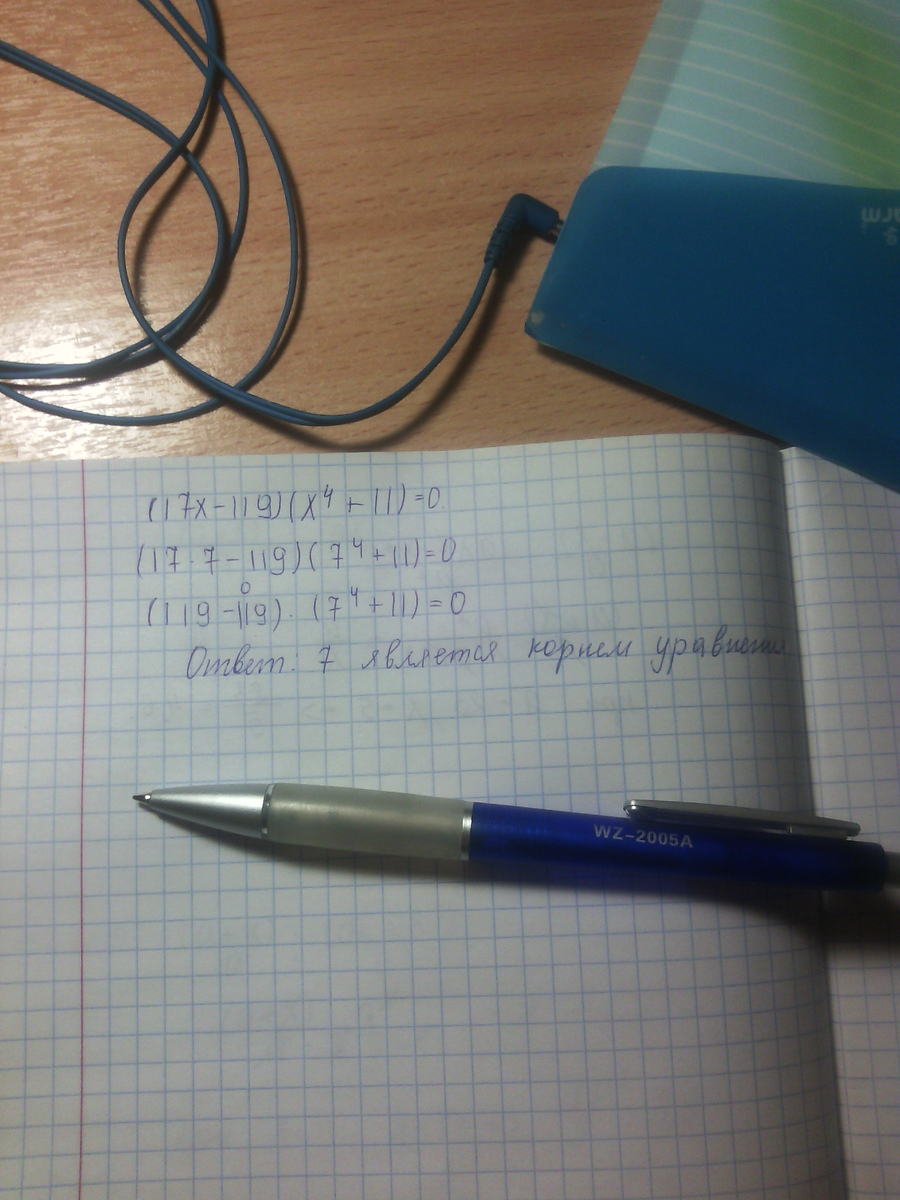 (17x-119)(x⁴+11)=0
(17·7-119)(7⁴+11)=0
0
(119-119)·(7⁴+11)=0
Ответ: 7 является корнем уравнения
WZ-2005A